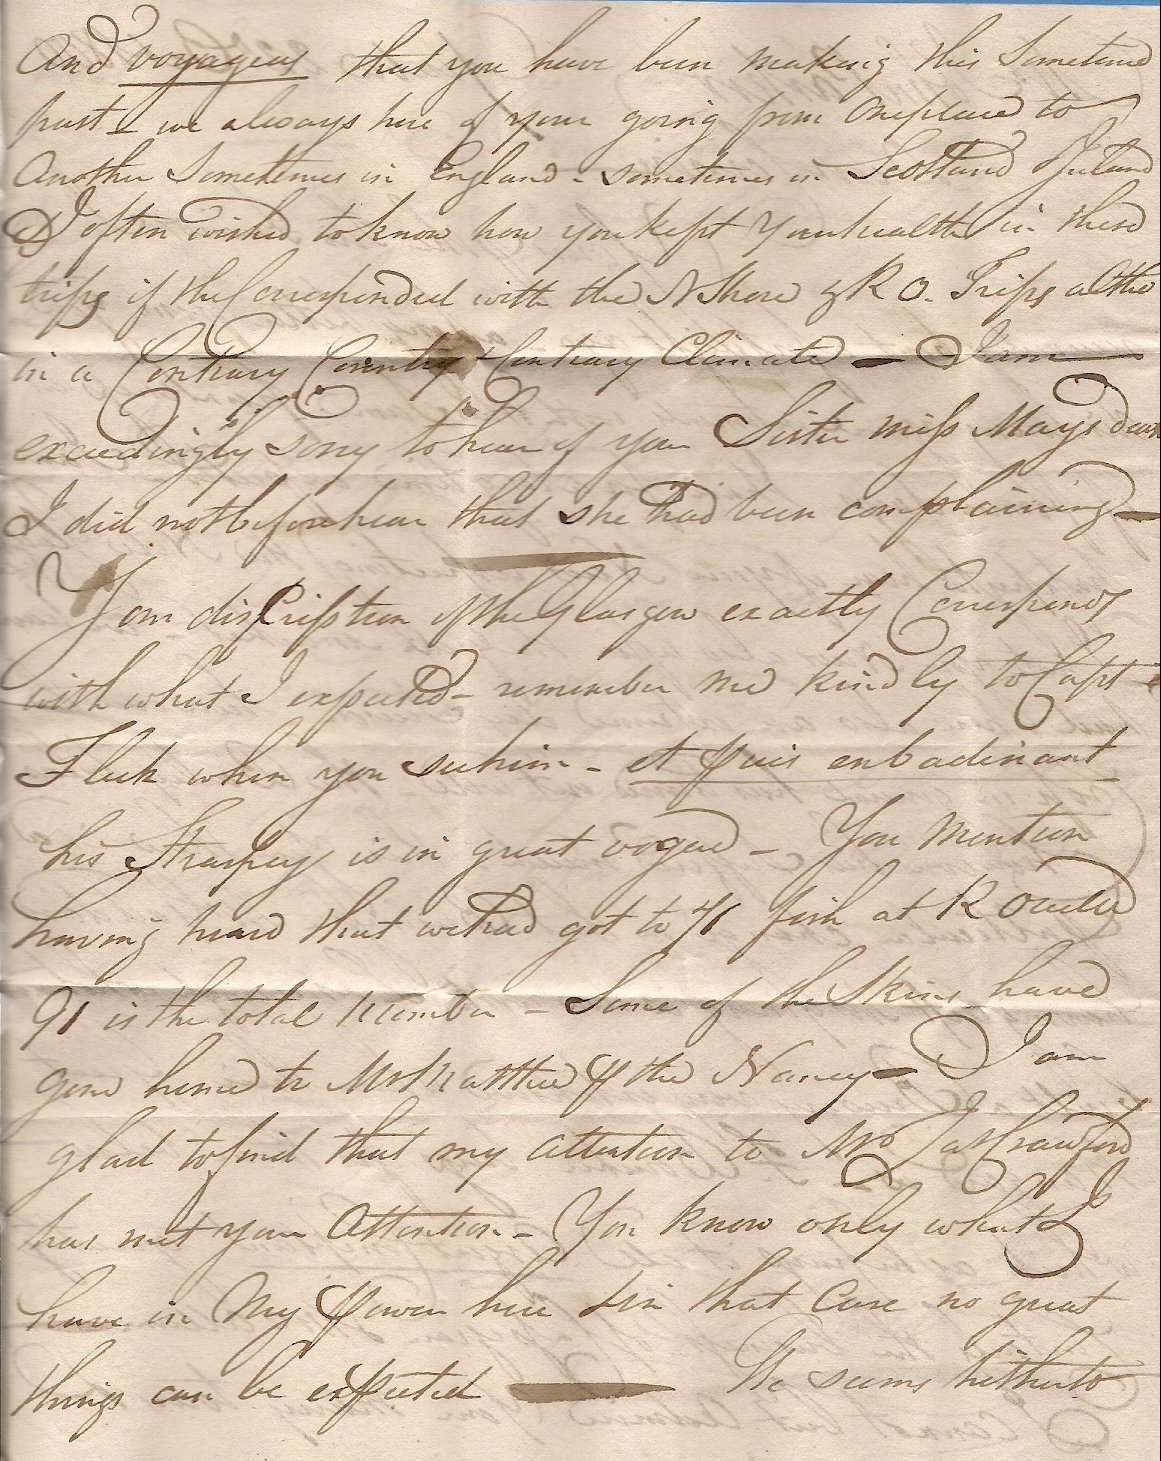 And voyages that you have been making this Sometime
past – we always here of your going from One place to
Another Sometimes in England – sometimes in Scotland Ireland
I often wished to know how you kept Your health in these
trips if the Corresponded with the N Shore & R O. Trips altho
in a Contrary Country & Contrary Climate – I am
exceedingly sorry to hear of your Sister miss Mays
I did not before hear that she had been complaining –
Your discription of the Glasgow exactly Corresponds
with what I expected – remember me kindly to Capt
Fleck when you see him – et puis en badinant
his Strapey is in great vogue – You Mention
having heard that we had got to 71 fish at R Ouelle
91 is the total number – Some of the Skins have
gone home to Mr Matthe of the Nancy – I am
glad to find that my attention to Mr Jas Crawford
has met your Attention – You know only what I
have in My power here & in that Case no great
things can be expected — He seems hitherto